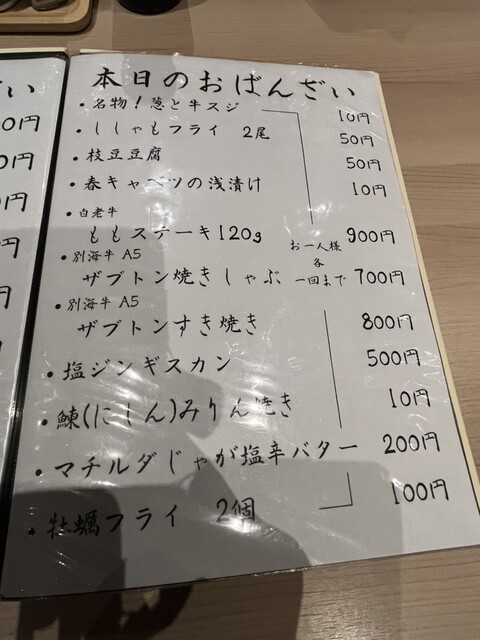 本日のおばんざい
・名物！葱と牛スジ 10円
・ししゃもフライ 2尾 50円
・枝豆豆腐 50円
・春キャベツの浅漬け 10円
・白老牛
ももステーキ120g 900円
・別海牛 A5
ザブトン焼きしゃぶ 700円
お一人様
各
一回まで
・別海牛 A5
ザブトンすき焼き 800円
・塩ジンギスカン 500円
・鰊(にしん)みりん焼き 10円
・マチルダじゃが塩辛バター 200円
・牡蠣フライ 2個 100円
い
0円
円
円
円
円